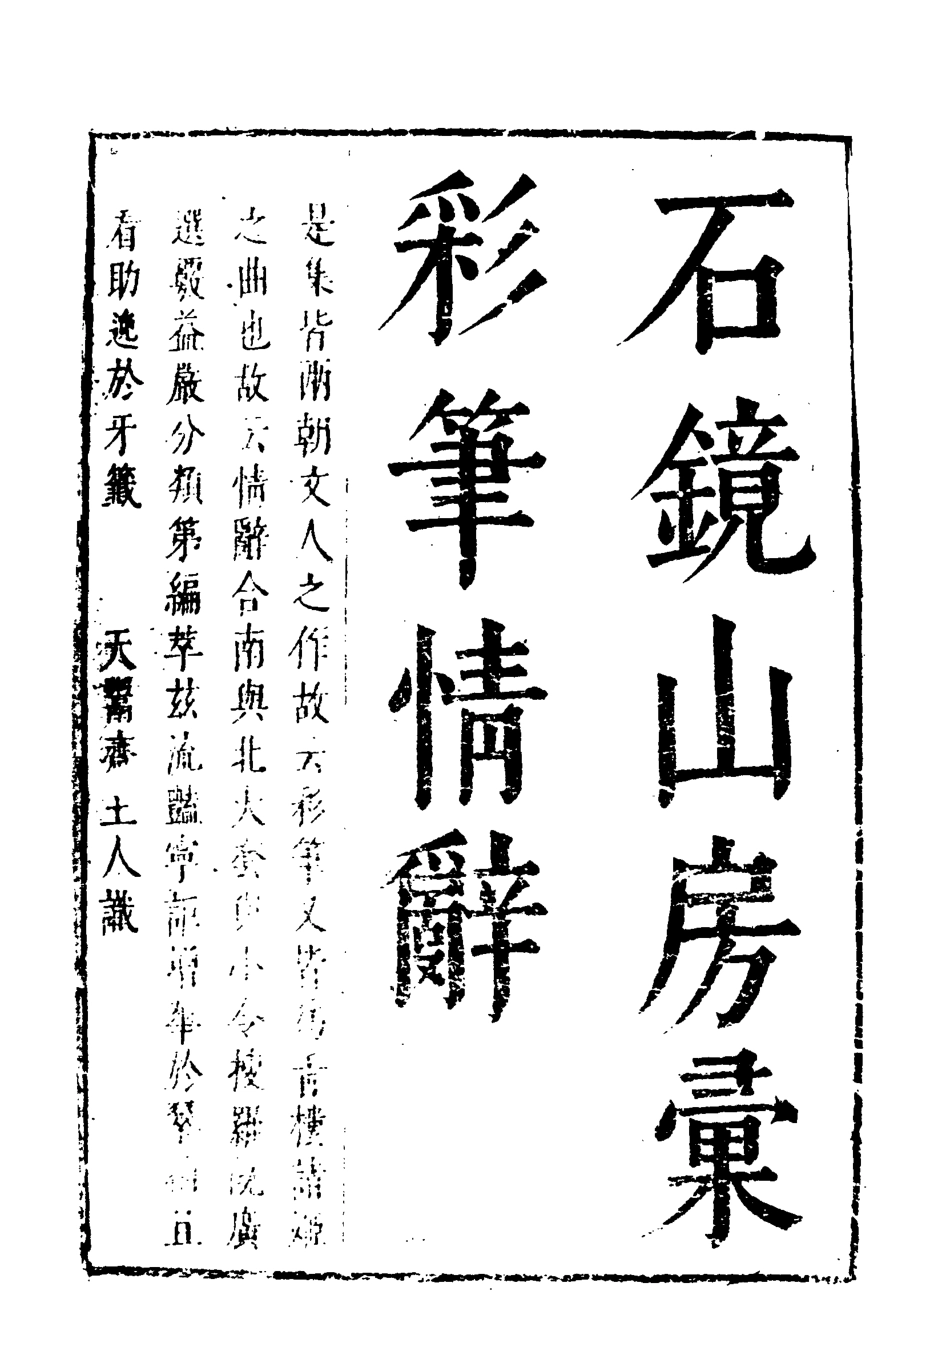 石鏡山房彙
彩筆情辭
是集皆兩朝文人之作故云彩筆又皆爲青樓諸姬
之曲也故云情辭合南與北大套與小令搜羅既廣
選覈益嚴分類第編萃茲流豔寧詎增華於琴 且
看助逸於牙籤
天 齋主人識